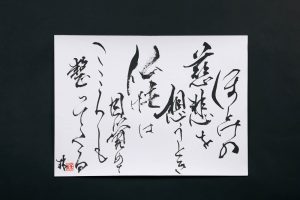 ほとけの
慈悲を
想うとき
仏性は
目覚めて
こころも
整ってくる